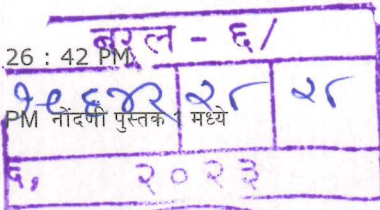 बरल - ६/
26 : 42 PM
१९६४२ २८ २८
PM नोंदणी पुस्तक 1 मध्ये
२०२३